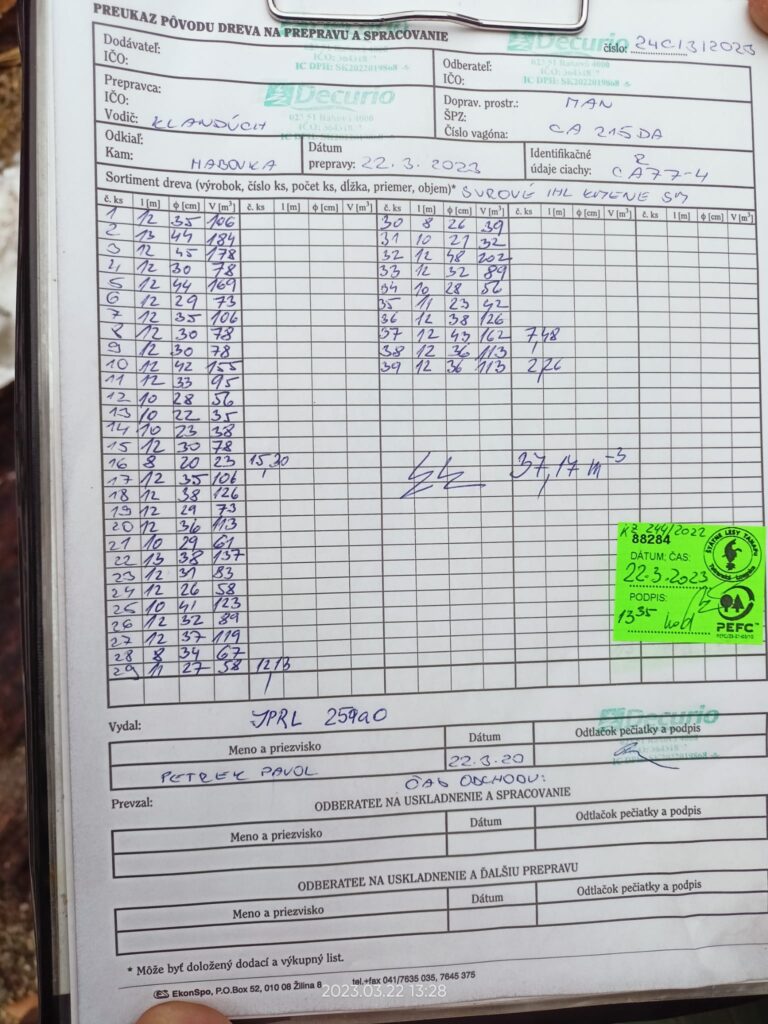 PREUKAZ PÔVODU DREVA NA PREPRAVU A SPRACOVANIE
Decurio
číslo: 24013/2023
Dodávateľ:
IČO:
IC DPH: SK2022019868
Odberateľ:
IČO:
IC DPH: SK2022019868
Prepravca:
IČO:
Vodič: KLANDÚCH
Decurio
IC DPH: SK2022019868
Doprav. prostr.: MAN
ŠPZ:
Číslo vagóna: CA 215DA
Odkiaľ:
Kam: HABOVKA
Dátum
prepravy: 22.3.2023
Identifikačné R
údaje ciachy: CA77-4
Sortiment dreva (výrobok, číslo ks, počet ks, dĺžka, priemer, objem)* SUROVÉ IHL KMENE SM
č. ks l [m] φ [cm] V [m³] č. ks l [m] φ [cm] V [m³] č. ks l [m] φ [cm] V [m³] č. ks l [m] φ [cm] V [m³]
1 12 35 106 30 8 26 39
2 13 44 184 31 10 21 32
3 12 45 178 32 12 48 202
4 12 30 78 33 12 32 89
5 12 44 169 34 10 28 56
6 12 29 73 35 11 23 42
7 12 35 106 36 12 38 126
8 12 30 78 37 12 43 162 7,48
9 12 30 78 38 12 36 113
10 12 42 155 39 12 36 113 2,26
11 12 33 95
12 10 28 56
13 10 22 35
14 10 23 38
15 12 30 78
16 8 20 23 15,30 37,17 m-3
17 12 35 106
18 12 38 126
19 12 29 73
20 12 36 113
21 10 29 61
22 13 38 137
23 12 31 83
24 12 26 58
25 10 41 123
26 12 32 89
27 12 37 119
28 8 34 67
29 11 27 58 12,13
KZ 244/2022
88284
DÁTUM; ČAS:
22.3.2023
PODPIS:
13 35
ŠTÁTNE LESY TANAPU
PEFC™
Vydal: JPRL 259a0
Decurio
Meno a priezvisko Dátum Odtlačok pečiatky a podpis
PETREK PAVOL 22.3.20
ČAS ODCHODU:
Prevzal: ODBERATEĽ NA USKLADNENIE A SPRACOVANIE
Meno a priezvisko Dátum Odtlačok pečiatky a podpis
ODBERATEĽ NA USKLADNENIE A ĎALŠIU PREPRAVU
Meno a priezvisko Dátum Odtlačok pečiatky a podpis
* Môže byť doložený dodací a výkupný list.
EkonSpo, P.O.Box 52, 010 08 Žilina 8 tel.+fax 041/7635 035, 7645 375
2023.03.22 13:28